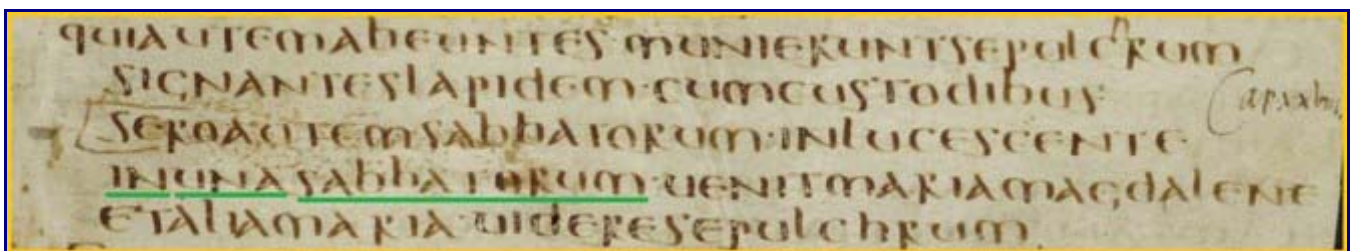 quiautemabeuntes munieruntsepulchrum
signanteslapidem·cumcustodibus·
seroautemsabbatorum·inlucescente·
inuna sabbatorum·uenitmariamagdalene
etaliamaria·uideresepulchrum